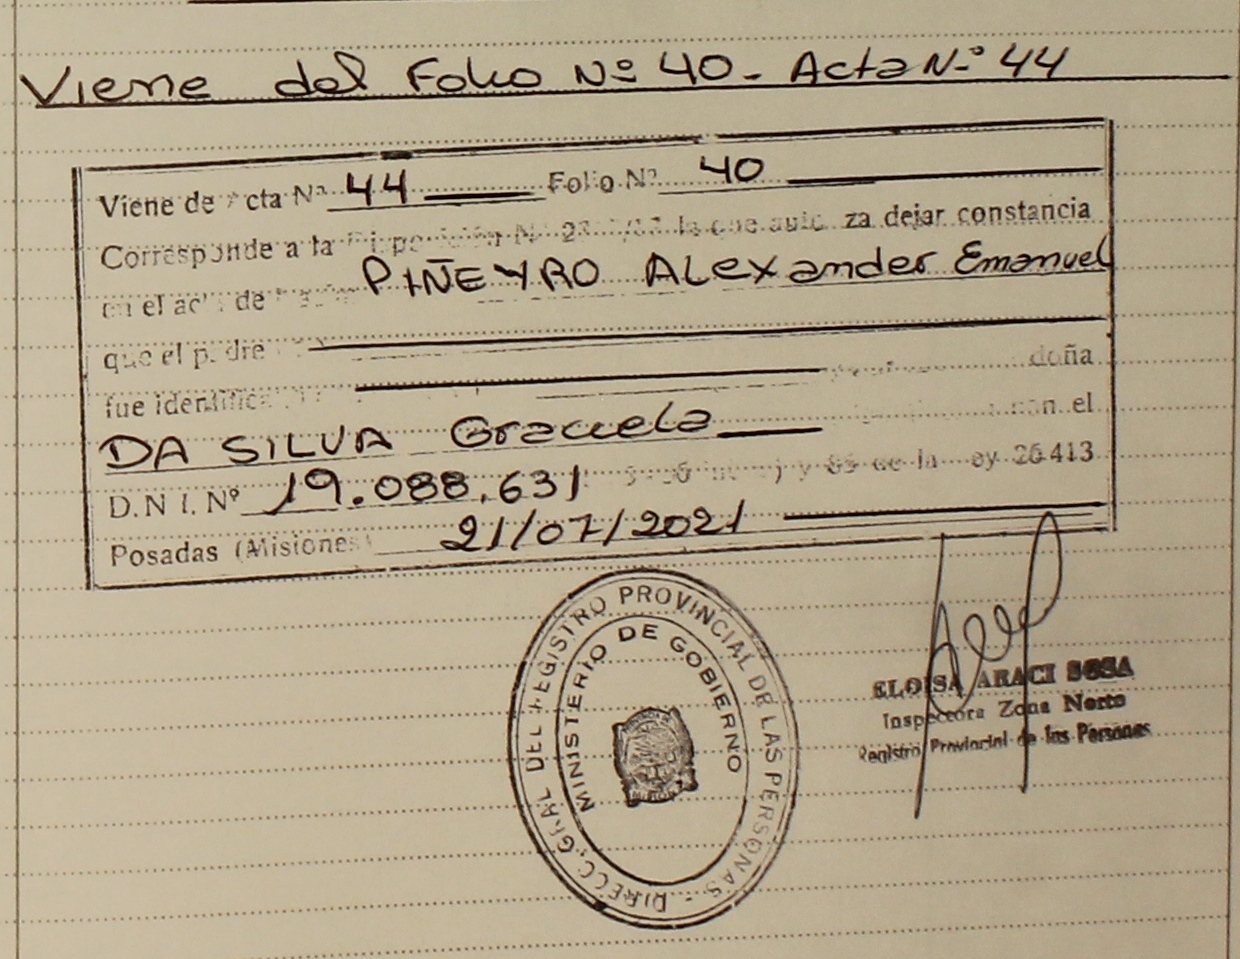 Viene del Folio Nº 40 - Acta N-º 44
Viene de cta Nº 44 Folio Nº 40
Corresponde a la la que auto za dejar constancia
en el ac de PIÑEYRO ALexander Emanuel
que el p dre
fue identifica doña
DA SILVA Graciela con el
D.N I. Nº 19.088.631 y 85 de la ey 20.413
Posadas (Misiones) 21/07/2021
DIRECC. GRAL DEL REGISTRO PROVINCIAL DE LAS PERSONAS -
MINISTERIO DE GOBIERNO
ELOISA ARACI SOSA
Inspectora Zona Norte
Registro Provincial de las Personas